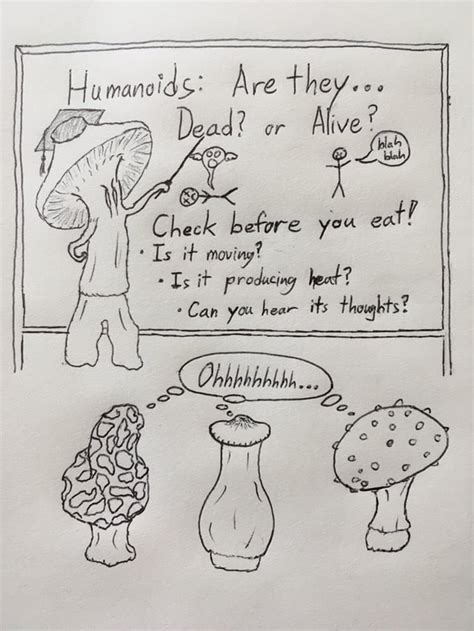 Humanoids: Are they...
Dead? or Alive?
blah
blah
Check before you eat!
• Is it moving?
• Is it producing heat?
• Can you hear its thoughts?
Ohhhhhhhhh...